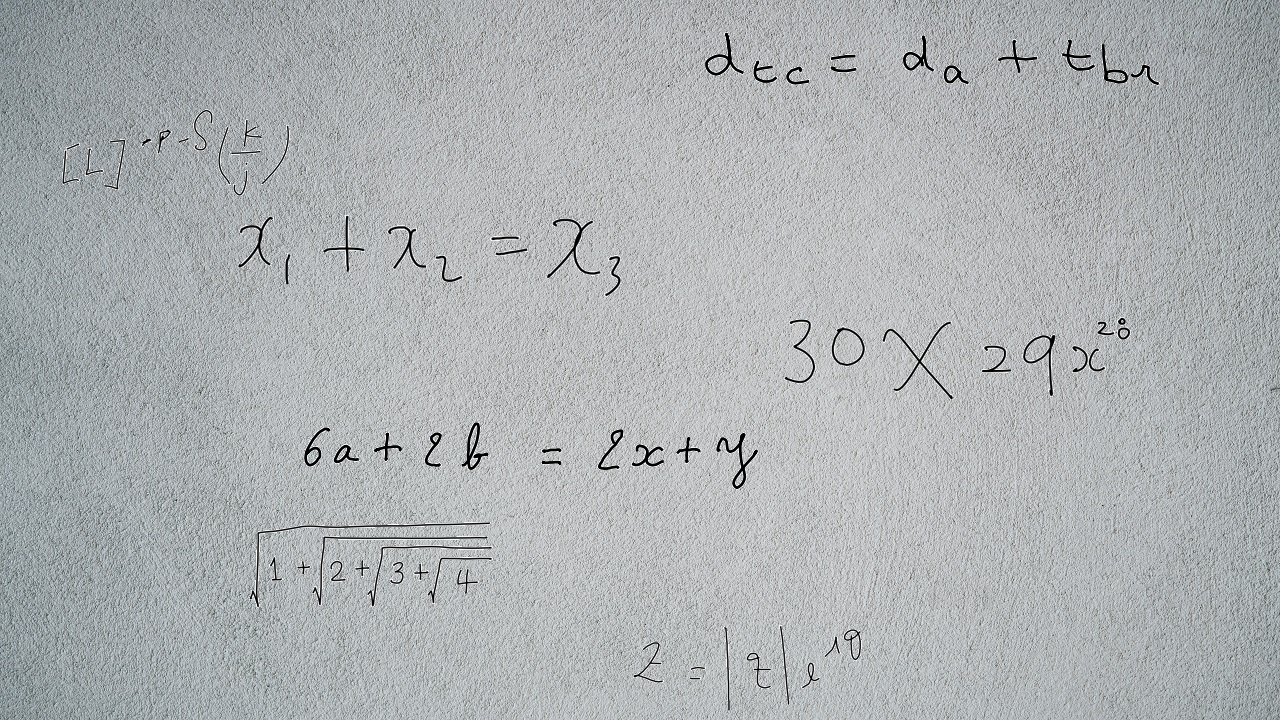 d_{tc} = d_a + t_{br}
[L]^{-p-S(\frac{K}{J})}
x_1 + x_2 = x_3
30 X 29x^{28}
6a + 2b = 2x + y
\sqrt{1+\sqrt{2+\sqrt{3+\sqrt{4}}}}
z = |z| e^{iθ}